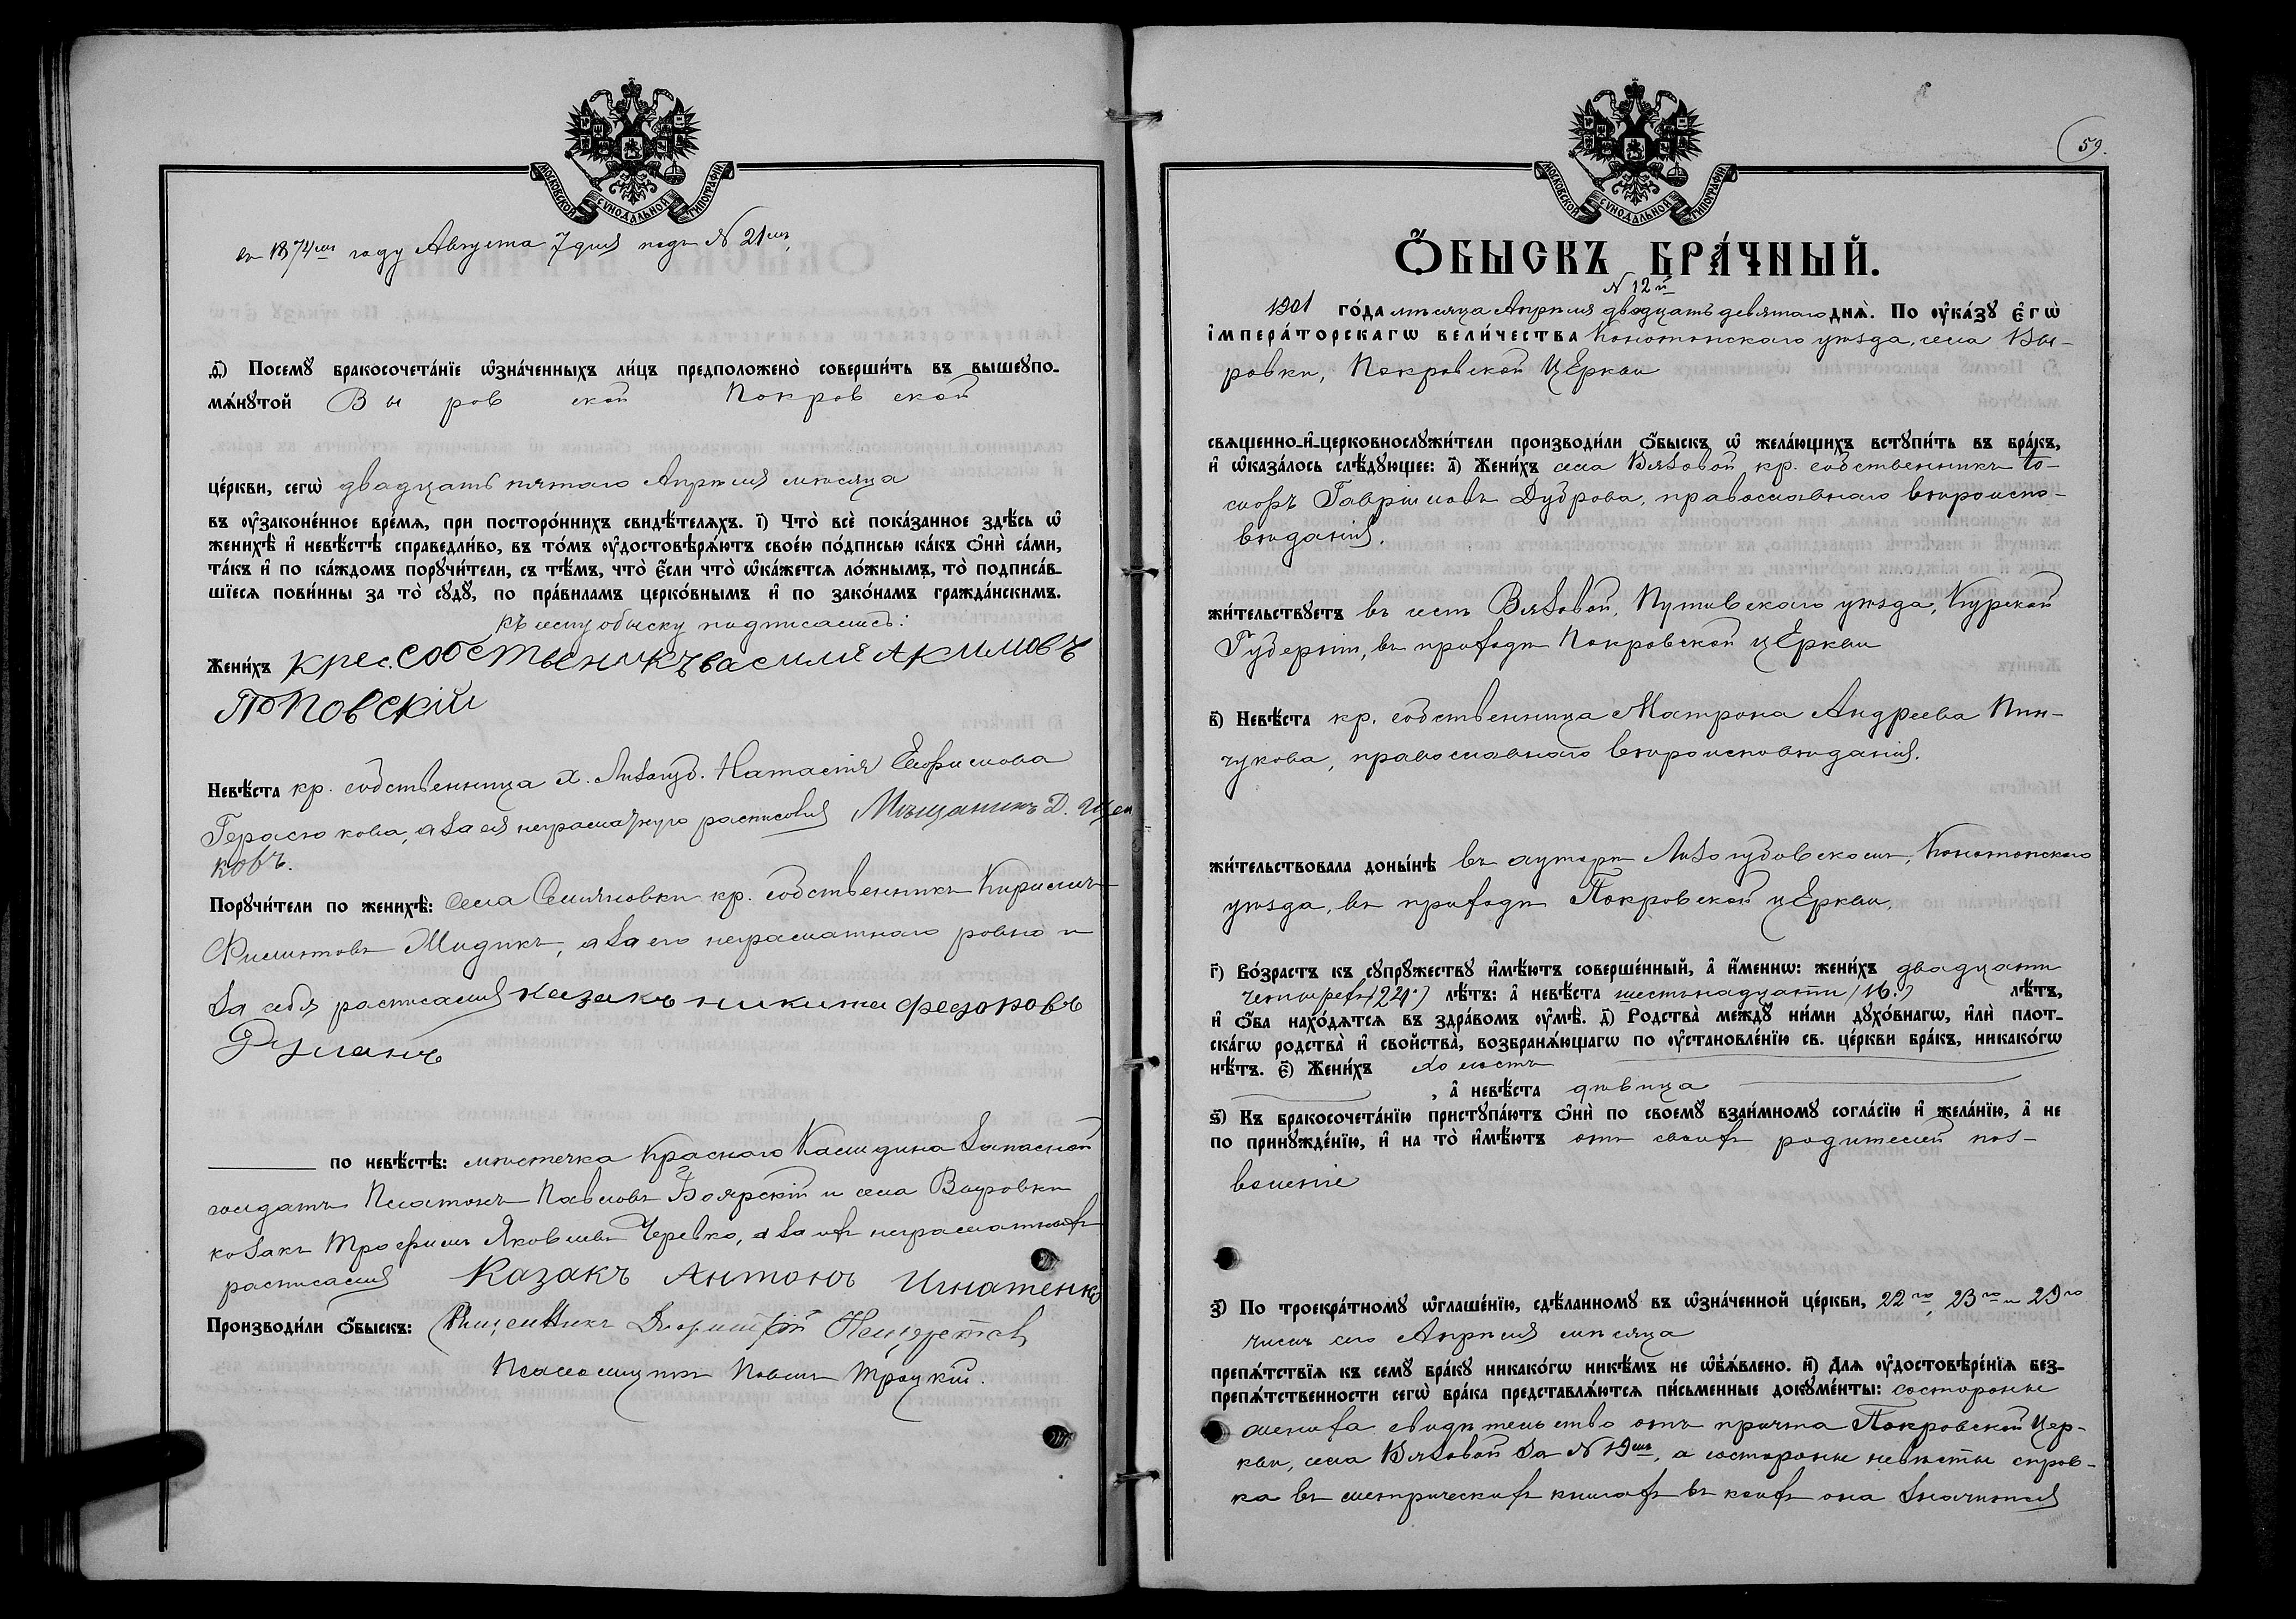 МОСКОВСКОЙ СѴНОДАЛЬНОЙ ТИПОГРАФІИ
въ 1874мъ году Августа 7 дня подъ N 21мъ.
д҃) Посемꙋ бракосочета́нїе ѡ҆зна́ченныхъ ли́цъ предположено̀ соверши́ть въ вышеꙋпо-
мѧ́нꙋтой Выровской Покровской
це́ркви, сегѡ̀ двадцать пятаго Апрѣля мѣсяца
въ ᲂу҆законе́нное вре́мѧ, при посторо́ннихъ свидѣ́телѧхъ. і҃) Что̀ всѐ пока́занное здѣ́сь ѡ҆
женихѣ̀ и҆ невѣ́стѣ справедли́во, въ то́мъ ᲂу҆достовѣрѧ́ютъ свое́ю по́дписью ка́къ ѻ҆нѝ са́ми,
та́къ и҆ по ка́ждомъ порꙋчи́тели, съ тѣ́мъ, что̀ є҆́сли что̀ ѡ҆ка́жетсѧ ло́жнымъ, то̀ подписа́в-
шїесѧ пови́нны за то̀ сꙋдꙋ̀, по пра́виламъ церко́внымъ и҆ по зако́намъ гражда́нскимъ.
Къ сему обыску подписались:
Жени́хъ крес. собственикъ василий Акимовъ
Поповскій
Невѣ́ста кр. собственница х. Лизогуб. Наталія Ефимова
Герасюкова, а за ея неграмотную расписался Мѣщанинъ Д.
ковъ.
Порꙋчи́тели по женихѣ̀: села Семяновки кр. собственникъ Кириллъ
Филиповъ Мидикъ, а за его неграмотнаго ровно и
за себя расписался казакъ никита федоровъ
по невѣ́стѣ: мѣстечка Краснаго Колядина Запасной
солдатъ Платонъ Павловъ Боярскій и села Выровки
козакъ Трофимъ Яковлевъ Черевко, а за ихъ неграмотныхъ
расписался Казакъ Антонъ Игнатенко
Производи́ли ѻ҆́быскъ: Священникъ Димитрій
Псаломщикъ Павелъ Троцкій.
59.
МОСКОВСКОЙ СѴНОДАЛЬНОЙ ТИПОГРАФІИ
Ѻ҆́БЫСКЪ БРА́ЧНЫЙ.
N 12й
1901 го́да мѣсяца Апрѣля двадцать девятаго днѧ̀. По ᲂу҆ка́зꙋ є҆гѡ̀
і҆мпера́торскагѡ вели́чества Конотопскаго уѣзда, села Вы-
ровки, Покровской Церкви
свѧщенно-и҆-церковнослꙋжи́тели производи́ли ѻ҆́быскъ ѡ҆ жела́ющихъ встꙋпи́ть въ бра́къ,
и҆ ѡ҆каза́лось слѣ́дꙋющее: а҃) Жени́хъ села Вязовой кр. собственникъ Іо-
сифъ Гавріиловъ Дуброва, православнаго вѣроиспо-
вѣданія.
жи́тельствꙋетъ въ селѣ Вязовой, Путивльскаго уѣзда, Курской
Губерніи, въ приходѣ Покровской церкви
в҃) Невѣ́ста кр. собственница Матрона Андреева Пин-
чукова, православнаго вѣроисповѣданія.
жи́тельствовала доны́нѣ въ хуторѣ Лизогубовскомъ, Конотопскаго
уѣзда, въ приходѣ Покровской церкви.
г҃) Во́зрастъ къ сꙋпрꙋ́жествꙋ и҆мѣ́ютъ соверше́нный, а҆ и҆́меннѡ: жени́хъ двадцати
четырехъ (24.) лѣ́тъ: а҆ невѣ́ста шестьнадцати (16.) лѣ́тъ,
и҆ ѻ҆́ба нахо́дѧтсѧ въ здра́вомъ ᲂу҆мѣ̀. д҃) Родства̀ ме́ждꙋ ни́ми дꙋхо́внагѡ, и҆лѝ плот-
ска́гѡ родства̀ и҆ свойства̀, возбранѧ́ющагѡ по ᲂу҆становле́нїю св. це́ркви бра́къ, никако́гѡ
нѣ́тъ. є҃) Жени́хъ холостъ
, а҆ невѣ́ста дѣвица
ѕ҃) Къ бракосочета́нїю пристꙋпа́ютъ ѻ҆нѝ по своемꙋ̀ взаи́мномꙋ согла́сїю и҆ жела́нїю, а҆ не
по принꙋжде́нїю, и҆ на то̀ и҆мѣ́ютъ отъ своихъ родителей поз-
воленіе
з҃) По троекра́тномꙋ ѡ҆глаше́нїю, сдѣ́ланномꙋ въ ѡ҆зна́ченной це́ркви, 22го, 23го и 29го
числъ сего Апрѣля мѣсяца
препѧ́тствїѧ къ семꙋ̀ бра́кꙋ никако́гѡ никѣ́мъ не ѡ҆б̾ѧ́влено. и҃) Длѧ ᲂу҆достовѣре́нїѧ без-
препѧ́тственности сегѡ̀ бра́ка представлѧ́ютсѧ пи́сьменные докꙋме́нты: со стороны
жениха свидѣтельство отъ причта Покровской Цер-
кви, села Вязовой за N 19мъ, а со стороны невѣсты справ-
ка въ метрическихъ книгахъ въ коихъ она значится